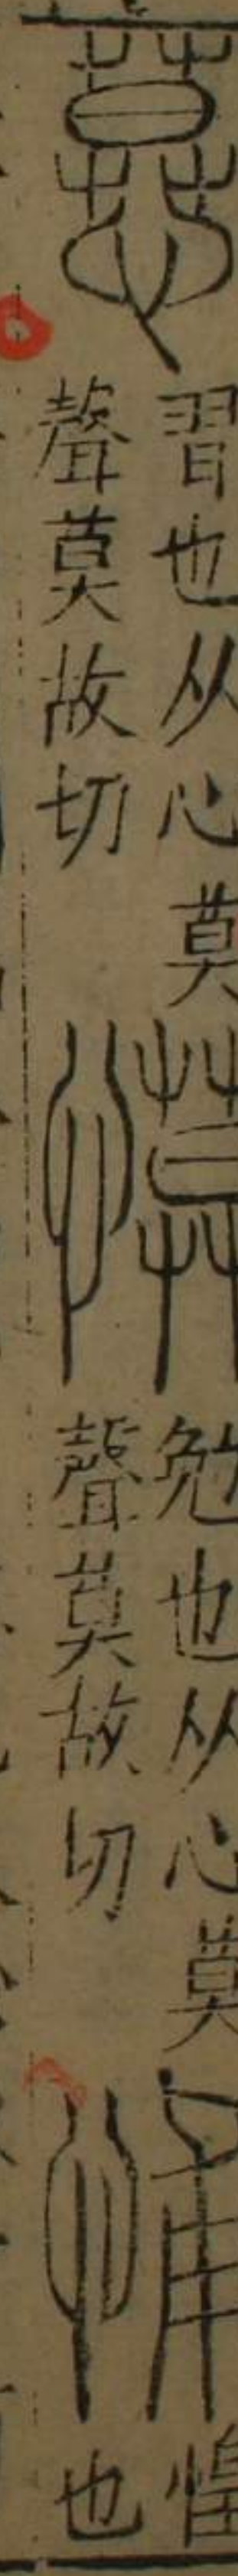 慕
習也从心莫
聲莫故切
慔
勉也从心莫
聲莫故切
悑
惶
也